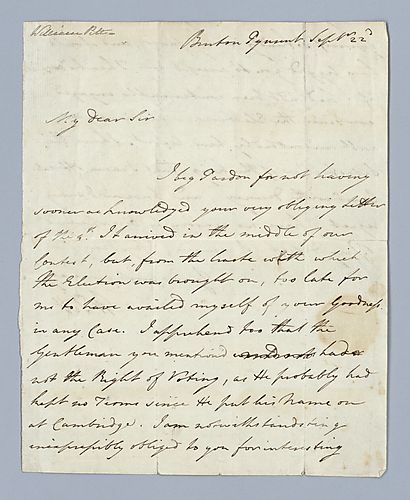 William Pitt
Burton Pynsent Sept. 22d
My dear Sir
I beg Pardon for not having
sooner acknowledged your very obliging Letter
of the 9th. It arrived in the middle of our
Contest, but from the haste with which
the Election was brought on, too late for
me to have availed myself of your Goodness
in any Case. I apprehend too that the
Gentleman you mention'd had
not the Right of Voting, as He probably had
kept no Terms since He put his Name on
at Cambridge. I am notwithstanding
inexpressibly obliged to you for interesting